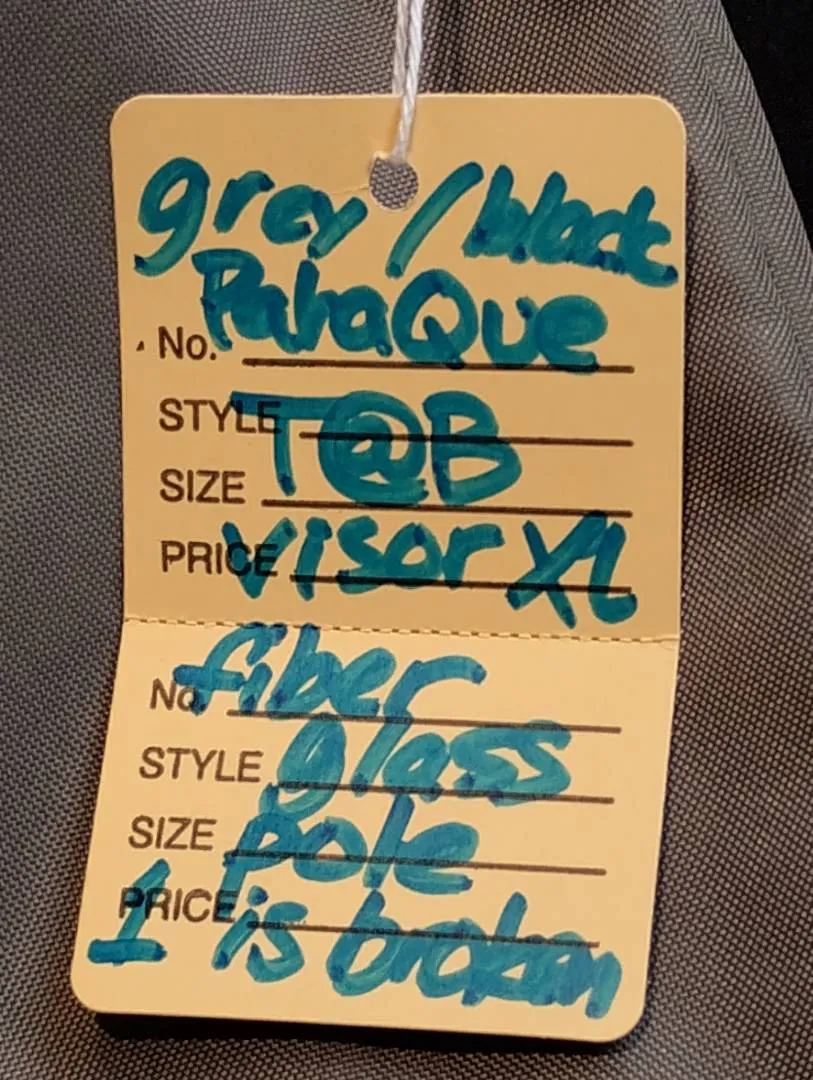 grey / black
PahaQue
No.
STYLE T@B
SIZE
PRICE visor XL
No. fiber
STYLE glass
SIZE pole
PRICE
1 is broken